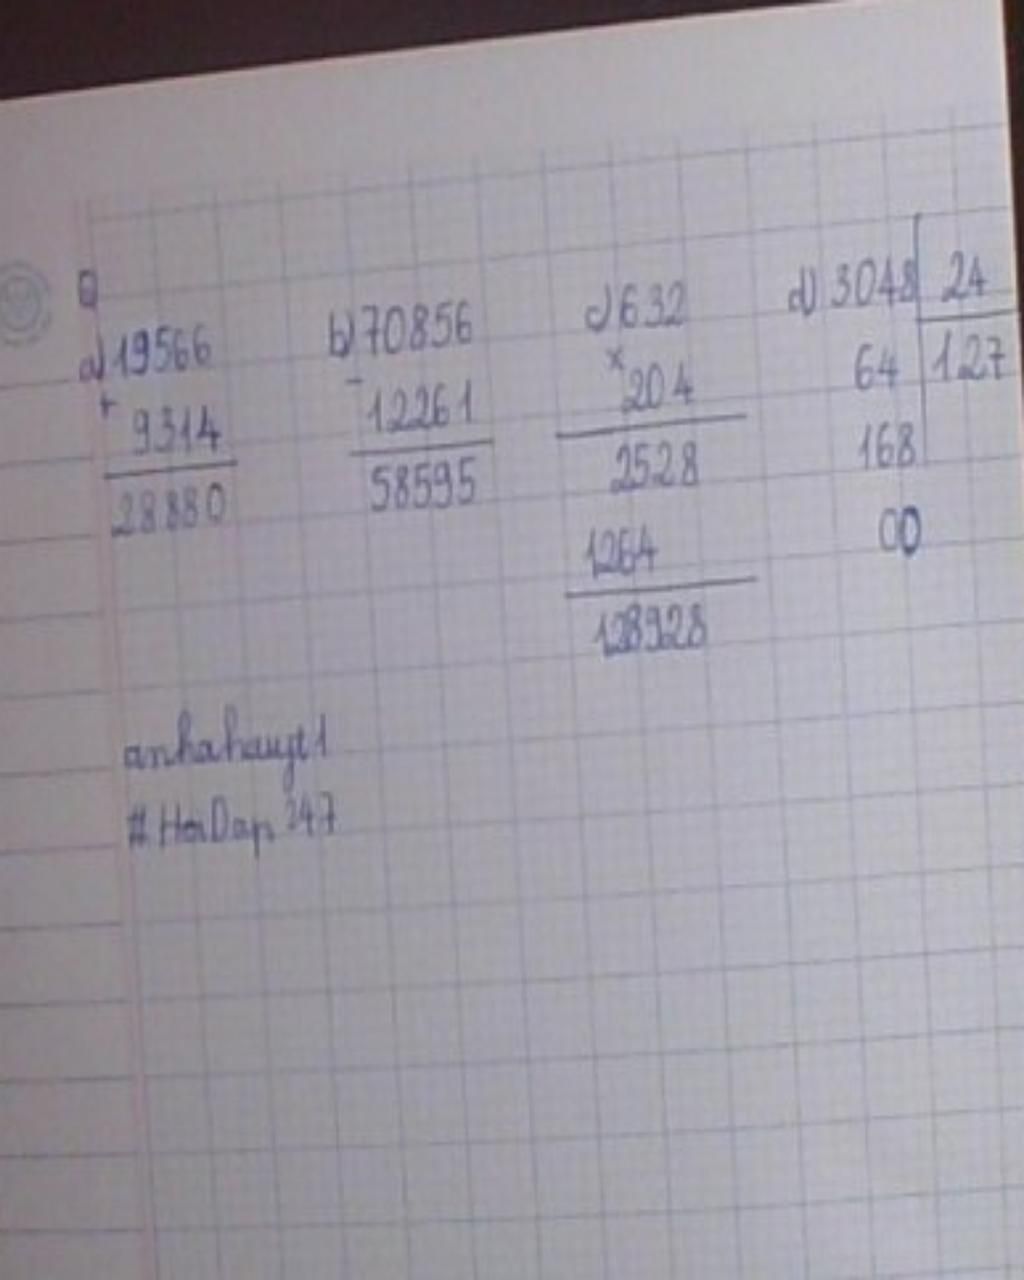 a) 19566
+
9314
28880
b) 70856
-
12261
58595
c) 632
x
204
2528
1264
128928
d) 3048 24
64 127
168
00
anhahauyt1
#HoiDap247